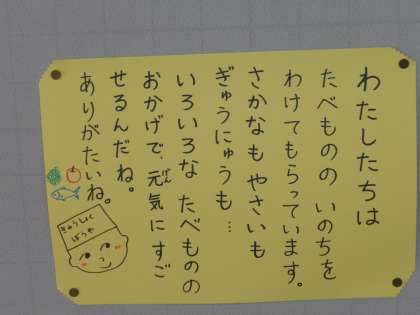 わたしたちは
たべものの いのちを
わけてもらっています。
さかなも やさいも
ぎゅうにゅうも…
いろいろな たべものの
おかげで、元気にすご
げん
せるんだね。
ありがたいね。
きゅうしょく
ぼうや